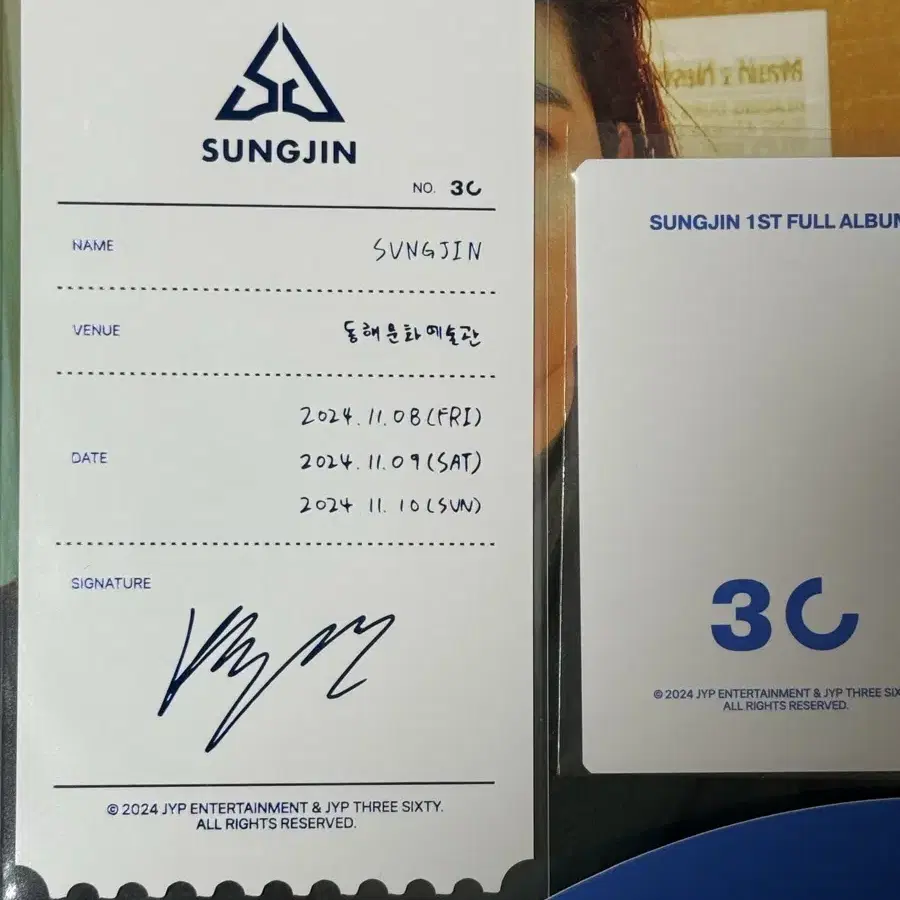 SUNGJIN
NO. 30
NAME
SUNGJIN
VENUE
동해문화예술관
DATE
2024.11.08(FRI)
2024.11.09(SAT)
2024.11.10(SUN)
SIGNATURE
© 2024 JYP ENTERTAINMENT & JYP THREE SIXTY.
ALL RIGHTS RESERVED.
SUNGJIN 1ST FULL ALBUM
30
© 2024 JYP ENTERTAINMENT & JYP THREE SIX
ALL RIGHTS RESERVED.